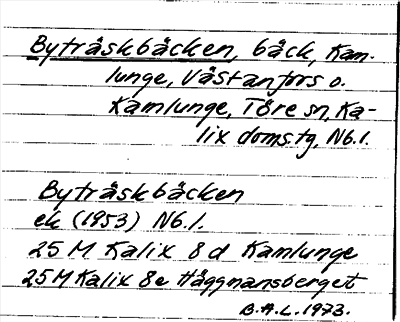 Byträskbäcken, bäck, Kam-
lunge, Västanfors o.
Kamlunge, Töre sn, Ka-
lix doms.tg, Nb.l.
Byträskbäcken
ek (1953) Nb.l.
25 M Kalix 8 d Kamlunge
25 M Kalix 8e Häggmansberget
B.H.L. 1973.